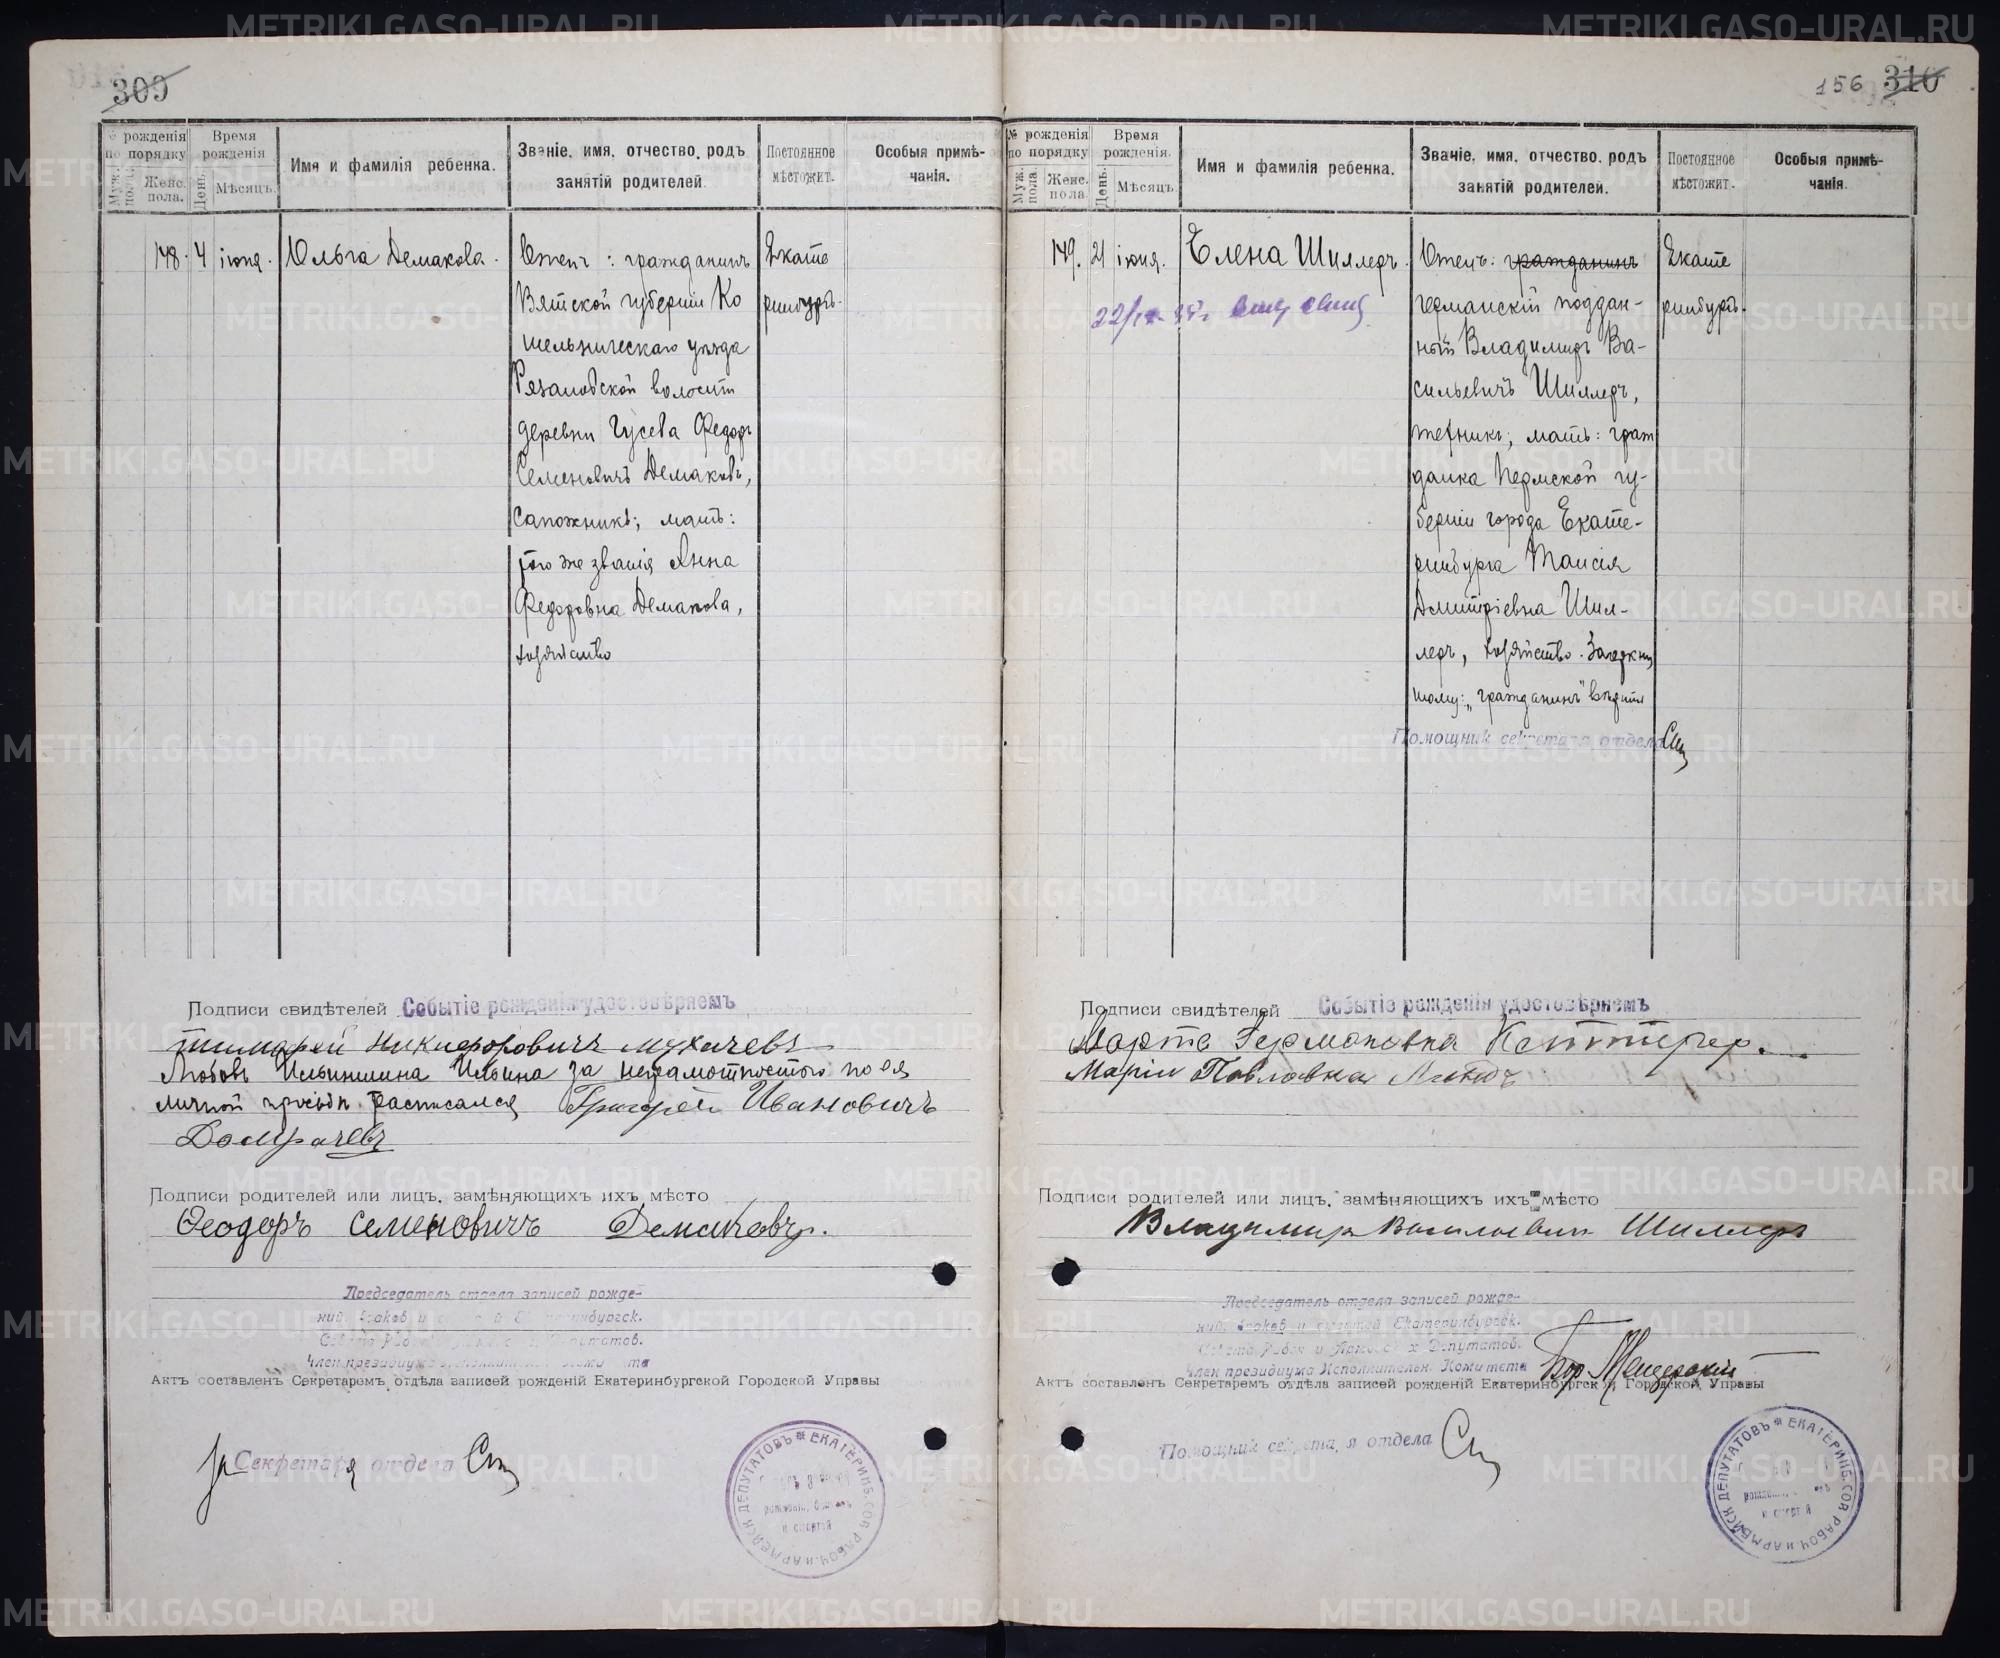 309
№ рожденія по порядку
Муж. пола.
Женс. пола.
Время рожденія
День.
Мѣсяцъ.
Имя и фамилія ребенка.
Званіе, имя, отчество, родъ занятій родителей.
Постоянное мѣстожит.
Особыя примѣ-
чанія.
148. 4 іюня. Ольга Демакова.
Отецъ: гражданинъ
Вятской губерніи Ко
тельническаго уѣзда
волости
деревни Гусева Федоръ
Семеновичъ Демаковъ,
сапожникъ; мать:
того же званія Анна
Федоровна Демакова,
хозяйство
Екате
ринбургъ.
Подписи свидѣтелей Событіе рожденія удостовѣряемъ
Никифоровичъ
Любовь Ильинишна Ильина за неграмотностью по ея
личной просьбѣ расписался Григорій Ивановичъ
Домрачевъ
Подписи родителей или лицъ, замѣняющихъ ихъ мѣсто
Феодоръ Семеновичъ Демаковъ.
Председатель отдела записей рожде-
ний, браков и смертей Екатеринбургск.
Совета Рабоч. и Армейских Депутатов.
Член президиума Исполнительн. Комитета
Актъ составленъ Секретаремъ отдѣла записей рожденій Екатеринбургской Городской Управы
за Секретаря отдела
ЕКАТЕРИНБ. СОВ. РАБОЧ. И АРМЕЙСК. ДЕПУТАТОВЪ
156 310
№ рожденія по порядку
Муж. пола.
Женс. пола
Время рожденія.
День.
Мѣсяцъ.
Имя и фамилія ребенка.
Званіе, имя, отчество, родъ занятій родителей.
Постоянное мѣстожит.
Особыя примѣ-
чанія.
149. 21 іюня. Елена Шиллеръ.
Отецъ: гражданинъ
германскій поддан-
ный Владимиръ Ва-
сильевичъ Шиллеръ,
техникъ; мать: граж
данка Пермской гу-
берніи города Екате-
ринбурга Таисія
Дмитріевна Шил-
леръ, хозяйство.
"гражданинъ"
Помощник секретаря отдела
Екате
ринбургъ.
Подписи свидѣтелей Событіе рожденія удостовѣряемъ
Марта Германовна
Марія Павловна
Подписи родителей или лицъ, замѣняющихъ ихъ мѣсто
Владимиръ Васильевич Шиллеръ
Председатель отдела записей рожде-
ний, браков и смертей Екатеринбургск.
Совета Рабоч. и Армейских Депутатов.
Член президиума Исполнительн. Комитета
Актъ составленъ Секретаремъ отдѣла записей рожденій Екатеринбургской Городской Управы
Помощник секретаря отдела
ЕКАТЕРИНБ. СОВ. РАБОЧ. И АРМЕЙСК. ДЕПУТАТОВЪ
METRIKI.GASO-URAL.RU